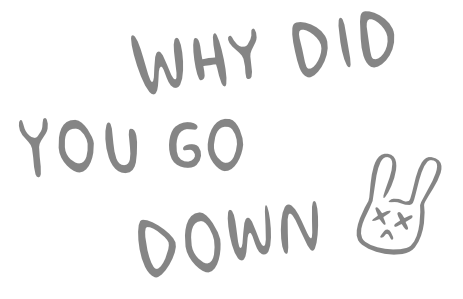 WHY DID
YOU GO
DOWN